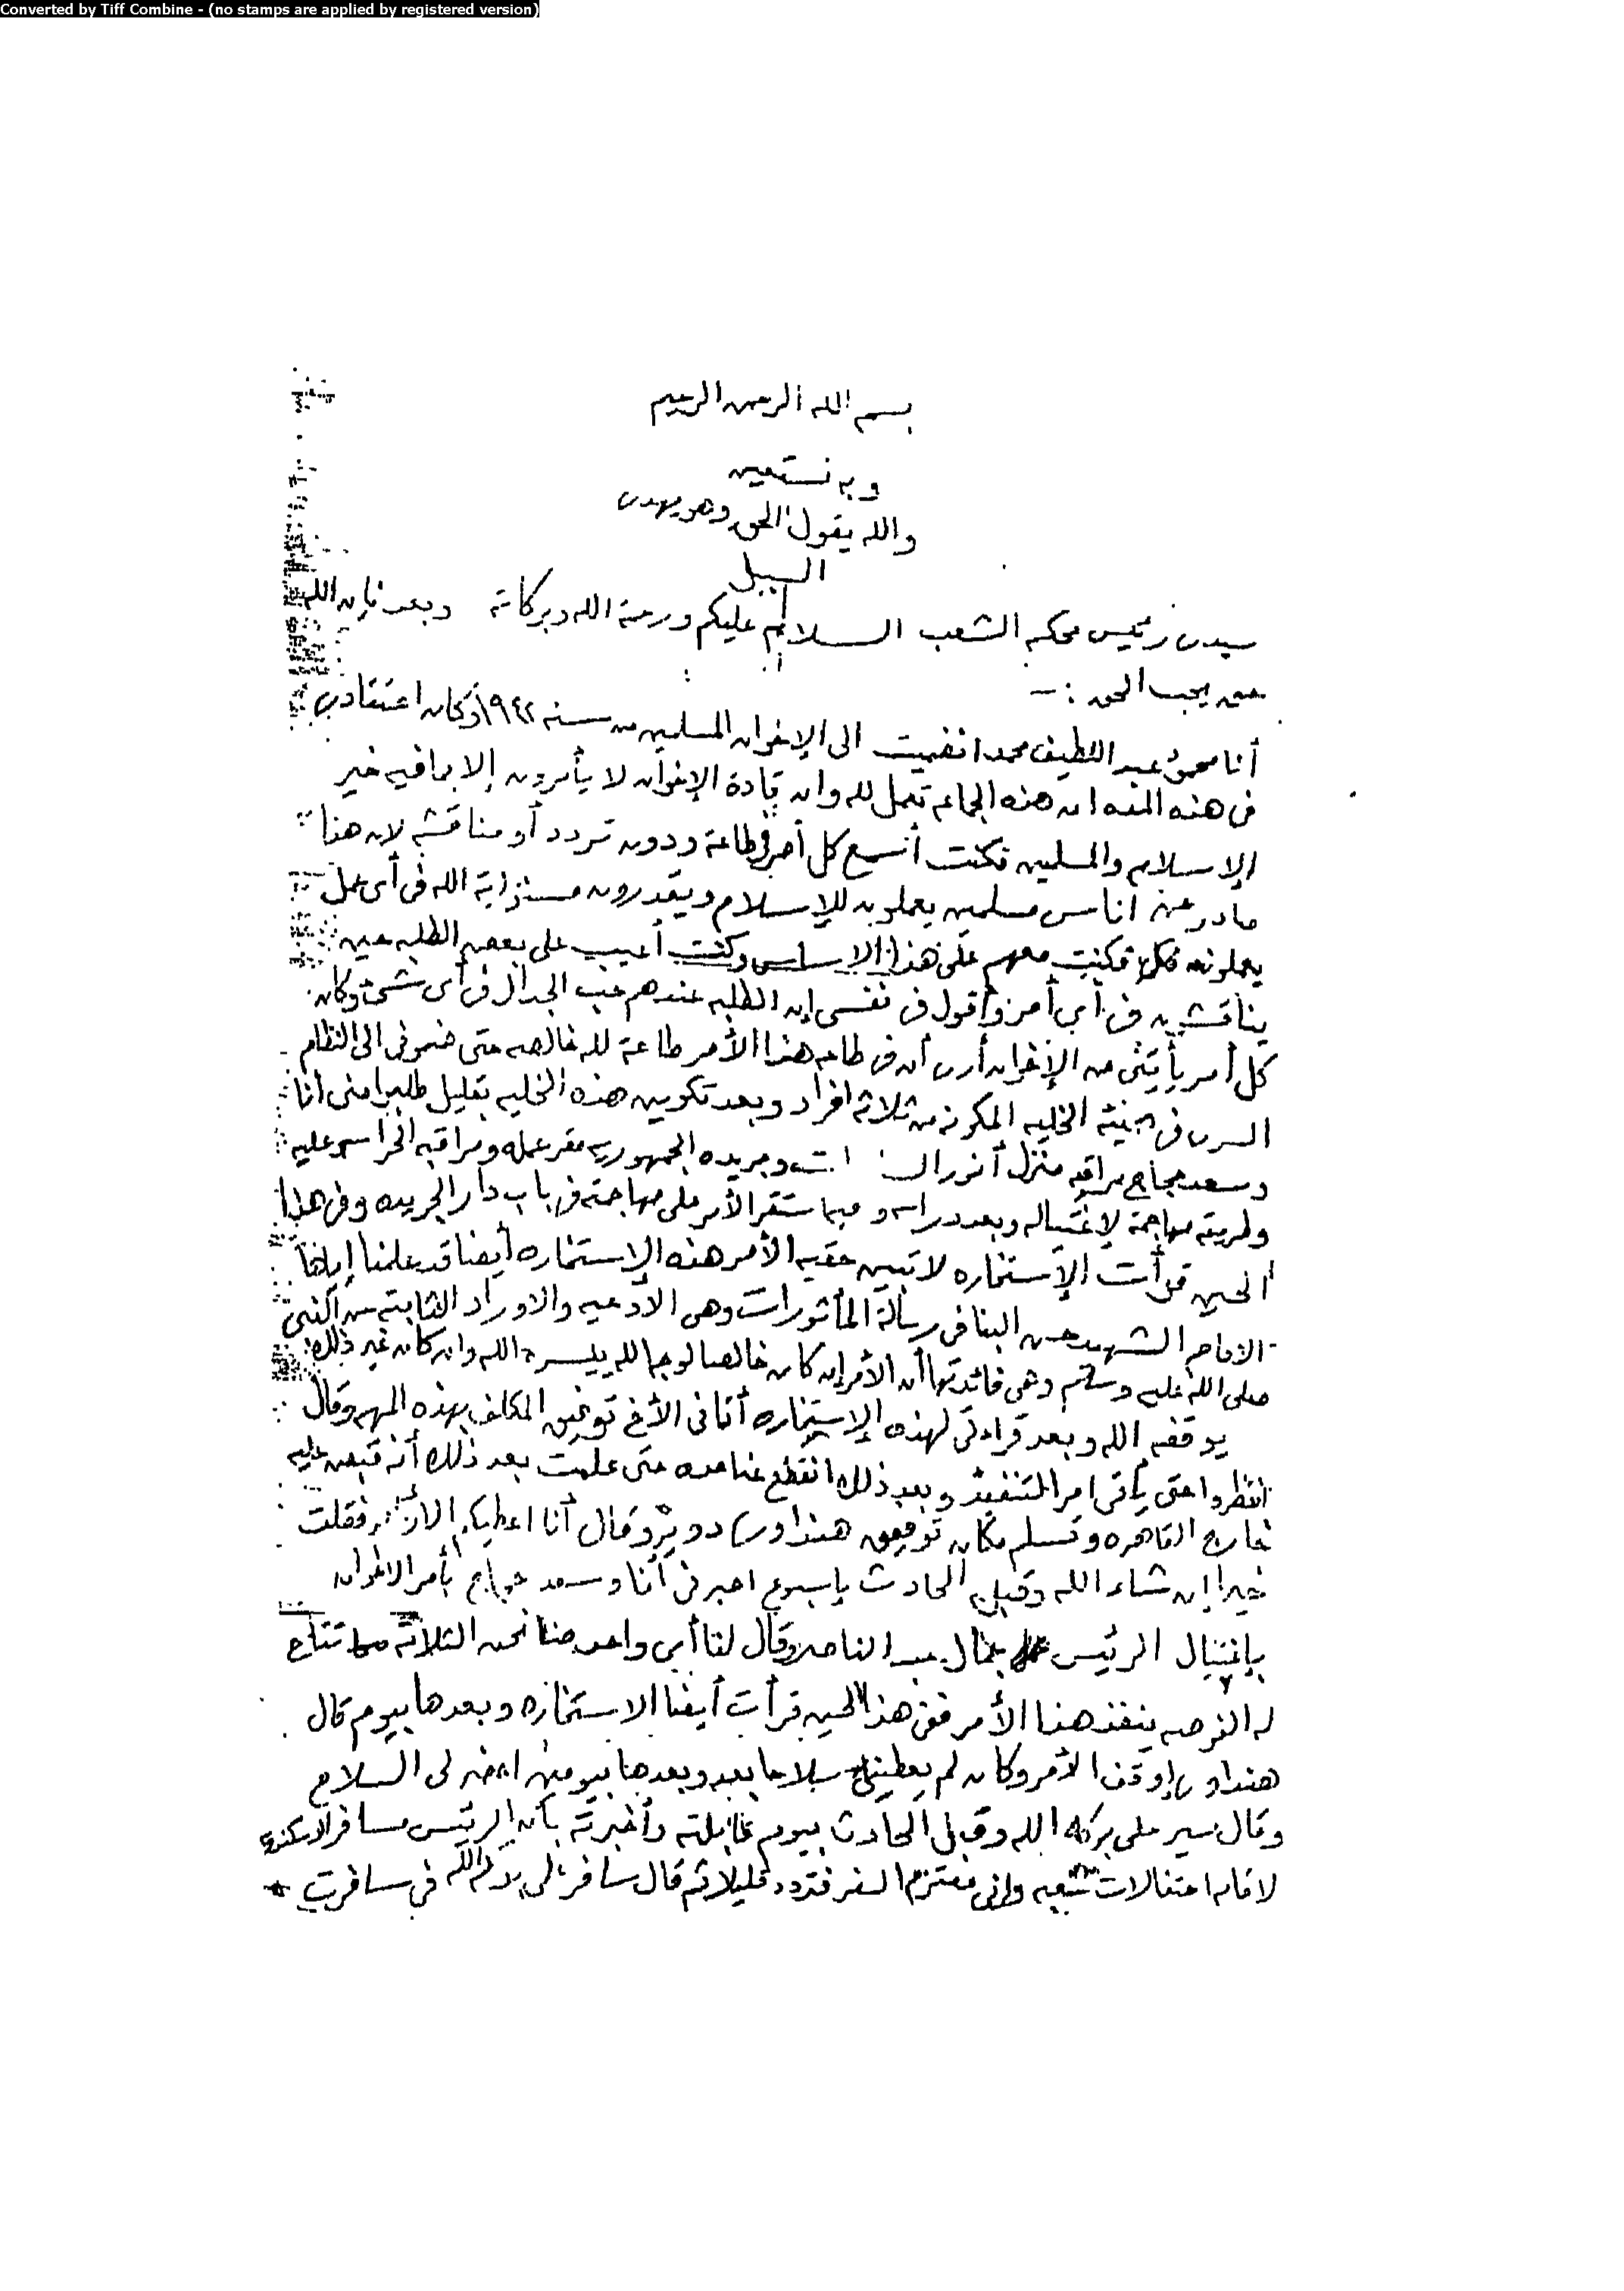 Converted by Tiff Combine - (no stamps are applied by registered version)
بسم الله الرحمن الرحيم
وبه نستعين
والله يقول الحق وهو يهدى
السبيل
سيدى رئيس محكمه الشعب السلام عليكم ورحمة الله وبركاته وبعد فإن الله
حق يحب الحق :-
أنا محمود عبد اللطيف محمد انضميت الى الإخوان المسلمين من سنه ١٩٤٢ وكان اعتقادى
فى هذه المده ان هذه الجماعه تعمل لله وان قادة الإخوان لا يأمرون إلا بما فيه خير
الإسلام والمسلمين فكنت أسمع كل أمر فى طاعة ودون تردد أو مناقشه لان هذا
صادر عن اناس مسلمين يعملون للإسلام ويقدرون مسئولية الله فى أى عمل
يعملونه فكنت معهم على هذا الاساس وكنت أعيب على بعض الطلبه حين
يناقشون فى أى أمر وأقول فى نفسى إن الطلبه عندهم حب الجدال فى أى شىء وكان
كل أمر يأتينى من الإخوان أرى أن فى طاعه هذا الأمر طاعة لله خالصه حتى ضمونى الى النظام
السرى فى هيئة الخليه المكونه من ثلاثه افراد وبعد تكوين هذه الخليه بقليل طلبوا منى أنا
وسعد حجاج مراقبه منزل أنور السادات وجريده الجمهوريه مقر عمله ومراقبه الحراسه عليه
وطريقه مهاجمة لإغتياله وبعد دراسه استقر الأمر على مهاجمته فى باب دار الجريده وفى هذا
الحين قرأت الإستخاره لاتبين حقيه الأمر هذه الإستخاره أيضا قد علمنا إياها
الامام الشهيد حسن البنا فى رسالة المأثورات وهى الادعيه والاوراد الثابته عن النبى
صلى الله عليه وسلم وهى فائدتها أن الأمر إن كان خالصا لوجه الله ييسره الله وان كان غير ذلك
يوقفه الله وبعد قراءتى لهذه الإستخاره أتانى الأخ توفيق المكلف بهذه المهمه وقال
انتظروا حتى يأتى امر التنفيذ وبعد ذلك انقطع عنا مده حتى علمت بعد ذلك أنه قبض عليه
خارج القاهره وتسلم مكان توفيق هنداوى دوير وقال أنا اعطيكم الاوامر فقلت
خيرا إن شاء الله وقبل الحادث بإسبوع اخبرنى أنا وسعد حجاج بأمر الاخوان
بإغتيال الرئيس جمال عبد الناصر وقال لنا أى واحد منا نحن الثلاثه تتاح
له الفرصه ينفذ هذا الأمر ففى هذا الحين قرأت أيضا الاستخاره وبعدها بيوم قال
هنداوى إوقف الأمر وكان لم يعطينى سلاحا بعد وبعدها بيومين احضر لى السلاح
وقال سير على بركه الله وقبل الحادث بيوم قابلته وأخبرته بأن الرئيس مسافر الاسكندريه
لاقامه احتفالات شعبيه وإنى معتزم السفر فتردد قليلا ثم قال سافر على بركه الله سافرت